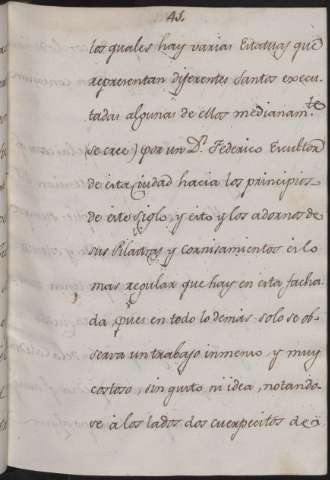 41.
los quales hay varias Estatuas que
representan diferentes Santos execu-
tadas algunas de ellos medianam.te
(se cree) por un D.n Federico Escultor
de esta Ciudad hacia los principios
de este Siglo, y esto y los adornos de
sus Pilastras y cornisamientos es lo
mas regular que hay en esta facha-
da, pues en todo lo demas solo se ob-
serva un trabajo inmenso, y muy
costoso, sin gusto ni idea, notando-
se à los lados dos cuerpecitos de